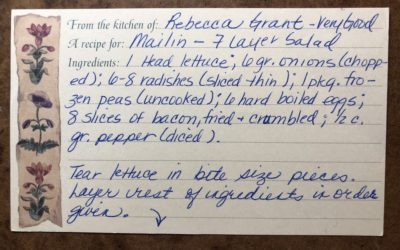 From the kitchen of: Rebecca Grant - Very Good
A recipe for: Mailin - 7 Layer Salad
Ingredients: 1 Head lettuce; 6 gr. onions (chopp-
ed); 6-8 radishes (sliced thin); 1 pkg. fro-
zen peas (uncooked); 6 hard boiled eggs;
8 slices of bacon, fried + crumbled; 1/2 c.
gr. pepper (diced).
Tear lettuce in bite size pieces.
Layer rest of ingredients in order
given.